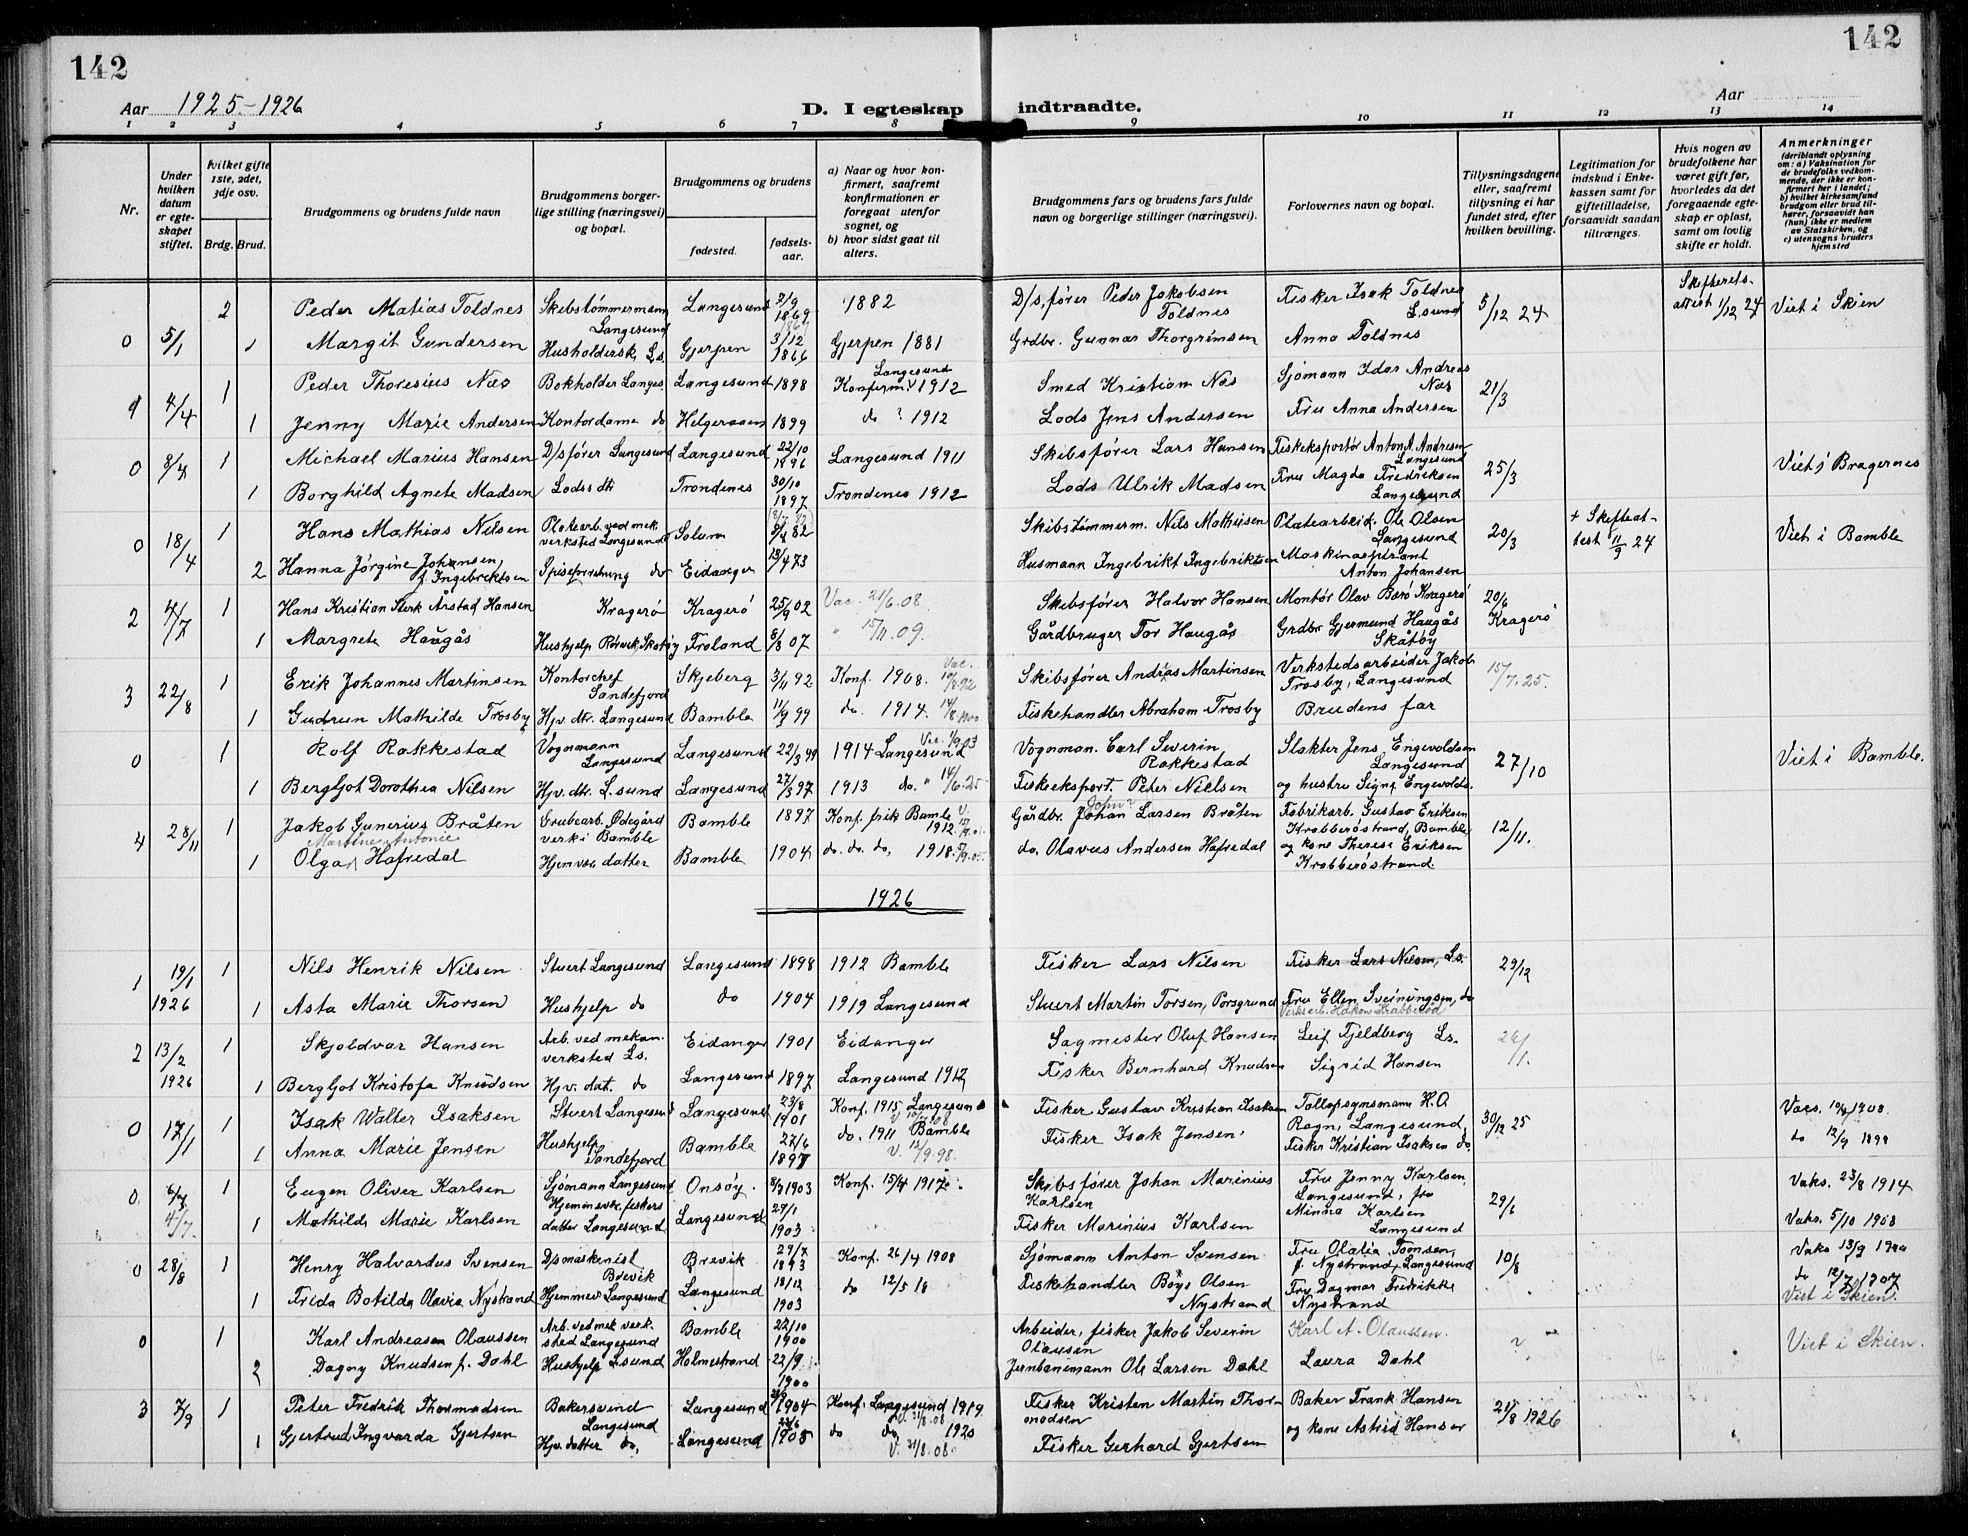 142
142
Aar 1925-1926
D. I egteskap indtraadte.
Aar
1 2 3 4 5 6 7 8 9 10 11 12 13 14
Nr.
Under hvilken datum er egteskapet stiftet.
Hvilket gifte 1ste, 2det, 3dje osv.
Brdg. Brud.
Brudgommens og brudens fulde navn
Brudgommens borgerlige stilling (næringsvei) og bopæl.
Brudgommens og brudens
fødested.
fødselsaar.
a) Naar og hvor konfirmert, saafremt konfirmationen er foregaat utenfor sognet, og
b) hvor sidst gaat til alters.
Brudgommens fars og brudens fars fulde navn og borgerlige stillinger (næringsvei).
Forlovernes navn og bopæl.
Tillysningsdagene eller, saafremt tillysning ei har fundet sted, efter hvilken bevilling.
Legitimation for indskud i Enkekassen samt for giftetilladelse, forsaavidt saadan tiltrænges.
Hvis nogen av brudefolkene har været gift før, hvorledes da det foregaaende egteskap er opløst, samt om lovlig skifte er holdt.
Anmerkninger
(deriblandt oplysning om: a) Vaksination for de brudefolks vedkommende, der ikke er konfirmert her i landet; b) hvilket kirkesamfund brudgom eller brud tilhører, forsaavidt han (hun) ikke er medlem av Statskirken, og c) utensogns bruders hjemsted
0 5/1 2 Peder Matias Toldnes Skibstømmermann Langesund Langesund 2/9 1869 1882 D/s, fører Peder Jakobsen Toldnes Fisker Isak Toldnes L.sund 5/12 24 Skifterets-attest 1/12 24 Viet i Skien
1 Margit Gundersen Husholdersk. Ls. Gjerpen 3/12 1866 Gjerpen 1881 Grdbr. Gunnar Thorgrimsen Anna Toldnes
1 4/4 1 Peder Thoresius Næs Bokholder Langes. Langesund 1898 Konfirm. Langesund 1912 Smed Kristian Næs Sjømann Idar Andreas Næs 21/3
1 Jenny Marie Andersen Kontordame do Helgeroaen 1899 do 1912 Lods Jens Andersen Fru Anna Andersen
0 8/4 1 Michael Marius Hansen D/sfører Langesund Langesund 22/10 1896 Langesund 1911 Skibsfører Lars Hansen Fiskeksportør Anton A. Andresen Langesund 25/3 Viet i Bragernes
1 Borghild Agnete Madsen Lodsdtr Trondenes 30/10 1897 Trondenes 1912 Lods Ulrik Madsen Fru Magda Fredriksen Langesund
0 18/4 1 Hans Mathias Nilsen Platearb. ved mek. verksted Langesund Solum 8/4 82 Skibstømmerm. Nils Mathisen Platearbeid. Ole Olsen Langesund 20/3 + Skifteattest 11/9 24 Viet i Bamble
2 Hanna Jørgine Johansen, f. Ingebrektsen Spiseforretning do Eidanger 13/4 73 Husmann Ingebrikt Ingebriktsen Maskinaspirant Anton Johansen
2 4/7 1 Hans Kristian Sterk Årstad Hansen Kragerø Kragerø 25/9 02 Vac. 21/6.08. Skibsfører Halvor Hansen Montør Olav Barø Kragerø 20/6 Kragerø
1 Margrete Haugås Hushjelp Rørvik, Skatøy Froland 8/8 07 " 15/11.09. Gårdbruger Tor Haugås Grdbr Gjermund Haugås Skåtøy
3 22/8 1 Erik Johannes Martinsen Kontorchef Sandefjord Skjeberg 3/11 92 Konf. 1908. Vac. 10/8.92 Skibsfører Andreas Martinsen Verkstedsarbeider Jakob Trosby, Langesund 15/7.25.
1 Gudrun Mathilde Trosby Hjv. dtr. Langesund Bamble 11/9 99 do. 1914. 14/8.1900 Fiskehandler Abraham Trosby Brudens far
0 1 Rolf Rakkestad Vognmann Langesund Langesund 22/3 99 1914 Langesund Vognman. Carl Severin Rakkestad Slakter Jens Engevoldsen Langesund 27/10 Viet i Bamble.
1 Bergljot Dorothea Nilsen Hjv. dtr. L.sund Langesund 27/3 97 1913 do. " 14/6.25 Fiskeeksport. Peter Nielsen og hustru Signe Engevolds.
4 28/11 1 Jakob Gunerius Bråten Grubearb. Ødegård verk i Bamble Bamble 1897 Konf. frik Bamble 1912 Gårdbr. Johan Larsen Bråten John? Fabrikarb. Gustav Eriksen Krabberøstrand, Bamble 12/11.
1 Olga Martine Antonie Hafredal Hjemvær. datter Bamble 1904 do. do. do, 1918. do. Olavus Andersen Hafredal og kone Therese Eriksen Krabberøstrand.
1926
1 19/1 1926 1 Nils Henrik Nilsen Stuert Langesund Langesund 1898 1912 Bamble Fisker Lars Nilsen Fisker Lars Nilsen, Ls. 29/12
1 Asta Marie Thorsen Hushjelp do do 1904 1919 Langesund Stuert Martin Torsen, Porsgrund Fru Ellen Sveinungsen, do
2 13/2 1926 1 Skjoldvar Hansen Arb. ved mekan. verksted Ls. Eidanger 1901 Eidanger Sagmester Oluf Hansen Leif Fjeldberg Ls. 24/1.
1 Bergljot Kristofa Knudsen Hjv. dat. do Langesund 1897 Langesund 1912 Fisker Bernhard Knudsen Sigrid Hansen
0 17/1 1 Isak Walter Isaksen Stuert Langesund Langesund 23/8 1901 Konf. 1915 Langesund Fisker Gustav Kristian Isaksen Tollopsynsmann H.O. Ragn, Langesund, 30/12 25 Vacs. 1908.
1 Anna Marie Jensen Hushjelp Sandefjord Bamble 27/6 1897 do. 1911 Bamble V. 12/9.98. Fisker Isak Jensen Fisker Kristian Isaksen do. do 12/9 1898
0 4/7. 1 Eugen Oliver Karlsen Sjømann Langesund Onsøy. 8/7 1903 Konf. 15/4 1917. Skibsfører Johan Marinius Karlsen Fru Jenny Karlsen, Langesund, fru 29/6 Vaks. 23/8 1914
1 Mathilde Marie Karlsen Hjemmevær. fiskers datter Langesund Langesund 29/1 1903 Fisker Marinius Karlsen Minna Karlsen Langesund Vaks. 5/10 1908
0 28/8 1 Henry Halvardus Svensen D/smaskinist Brevik Brevik 29/7 1893 Konf. 26/4 1908 Sjømann Anton Svensen Fru Olalia Tomsen, f. Nystrand, Langesund 10/8 Vaks 13/9 1900
1 Frida Botilda Olavia Nystrand Hjemmev Langesund Langesund 18/12 1903 do 12/5 18 Fiskehandler Boye Olsen Nystrand Fru Dagmar Fredrikke Nystrand do 12/7 1907 Viet i Skien.
0 1 Karl Andreasen Olaussen Arb. ved mek verksted Langesund Bamble 22/10 1900 Arbeider, fisker Jakob Severin Olausen Karl A. Olaussen. ? Viet i Skien.
2 Dagny Knudsen f. Dahl Hushjelp L.sund Holmestrand 22/9 1900 Jernbanemann Ole Larsen Dahl Laura Dahl
3 7/9 1 Peter Fredrik Thormodsen Bakersvend Langesund Langesund 1904 Konf. Langesund 1919. V. 31/8.08 Fisker Kristen Martin Thormodsen Baker Frank Hansen 21/8 1926
1 Gjertrud Ingvarda Gjertsen Hjv. datter do, Langesund 1905 do do, 1920 V. 31/8.08. Fisker Gerhard Gjertsen og kone Astrid Hansen